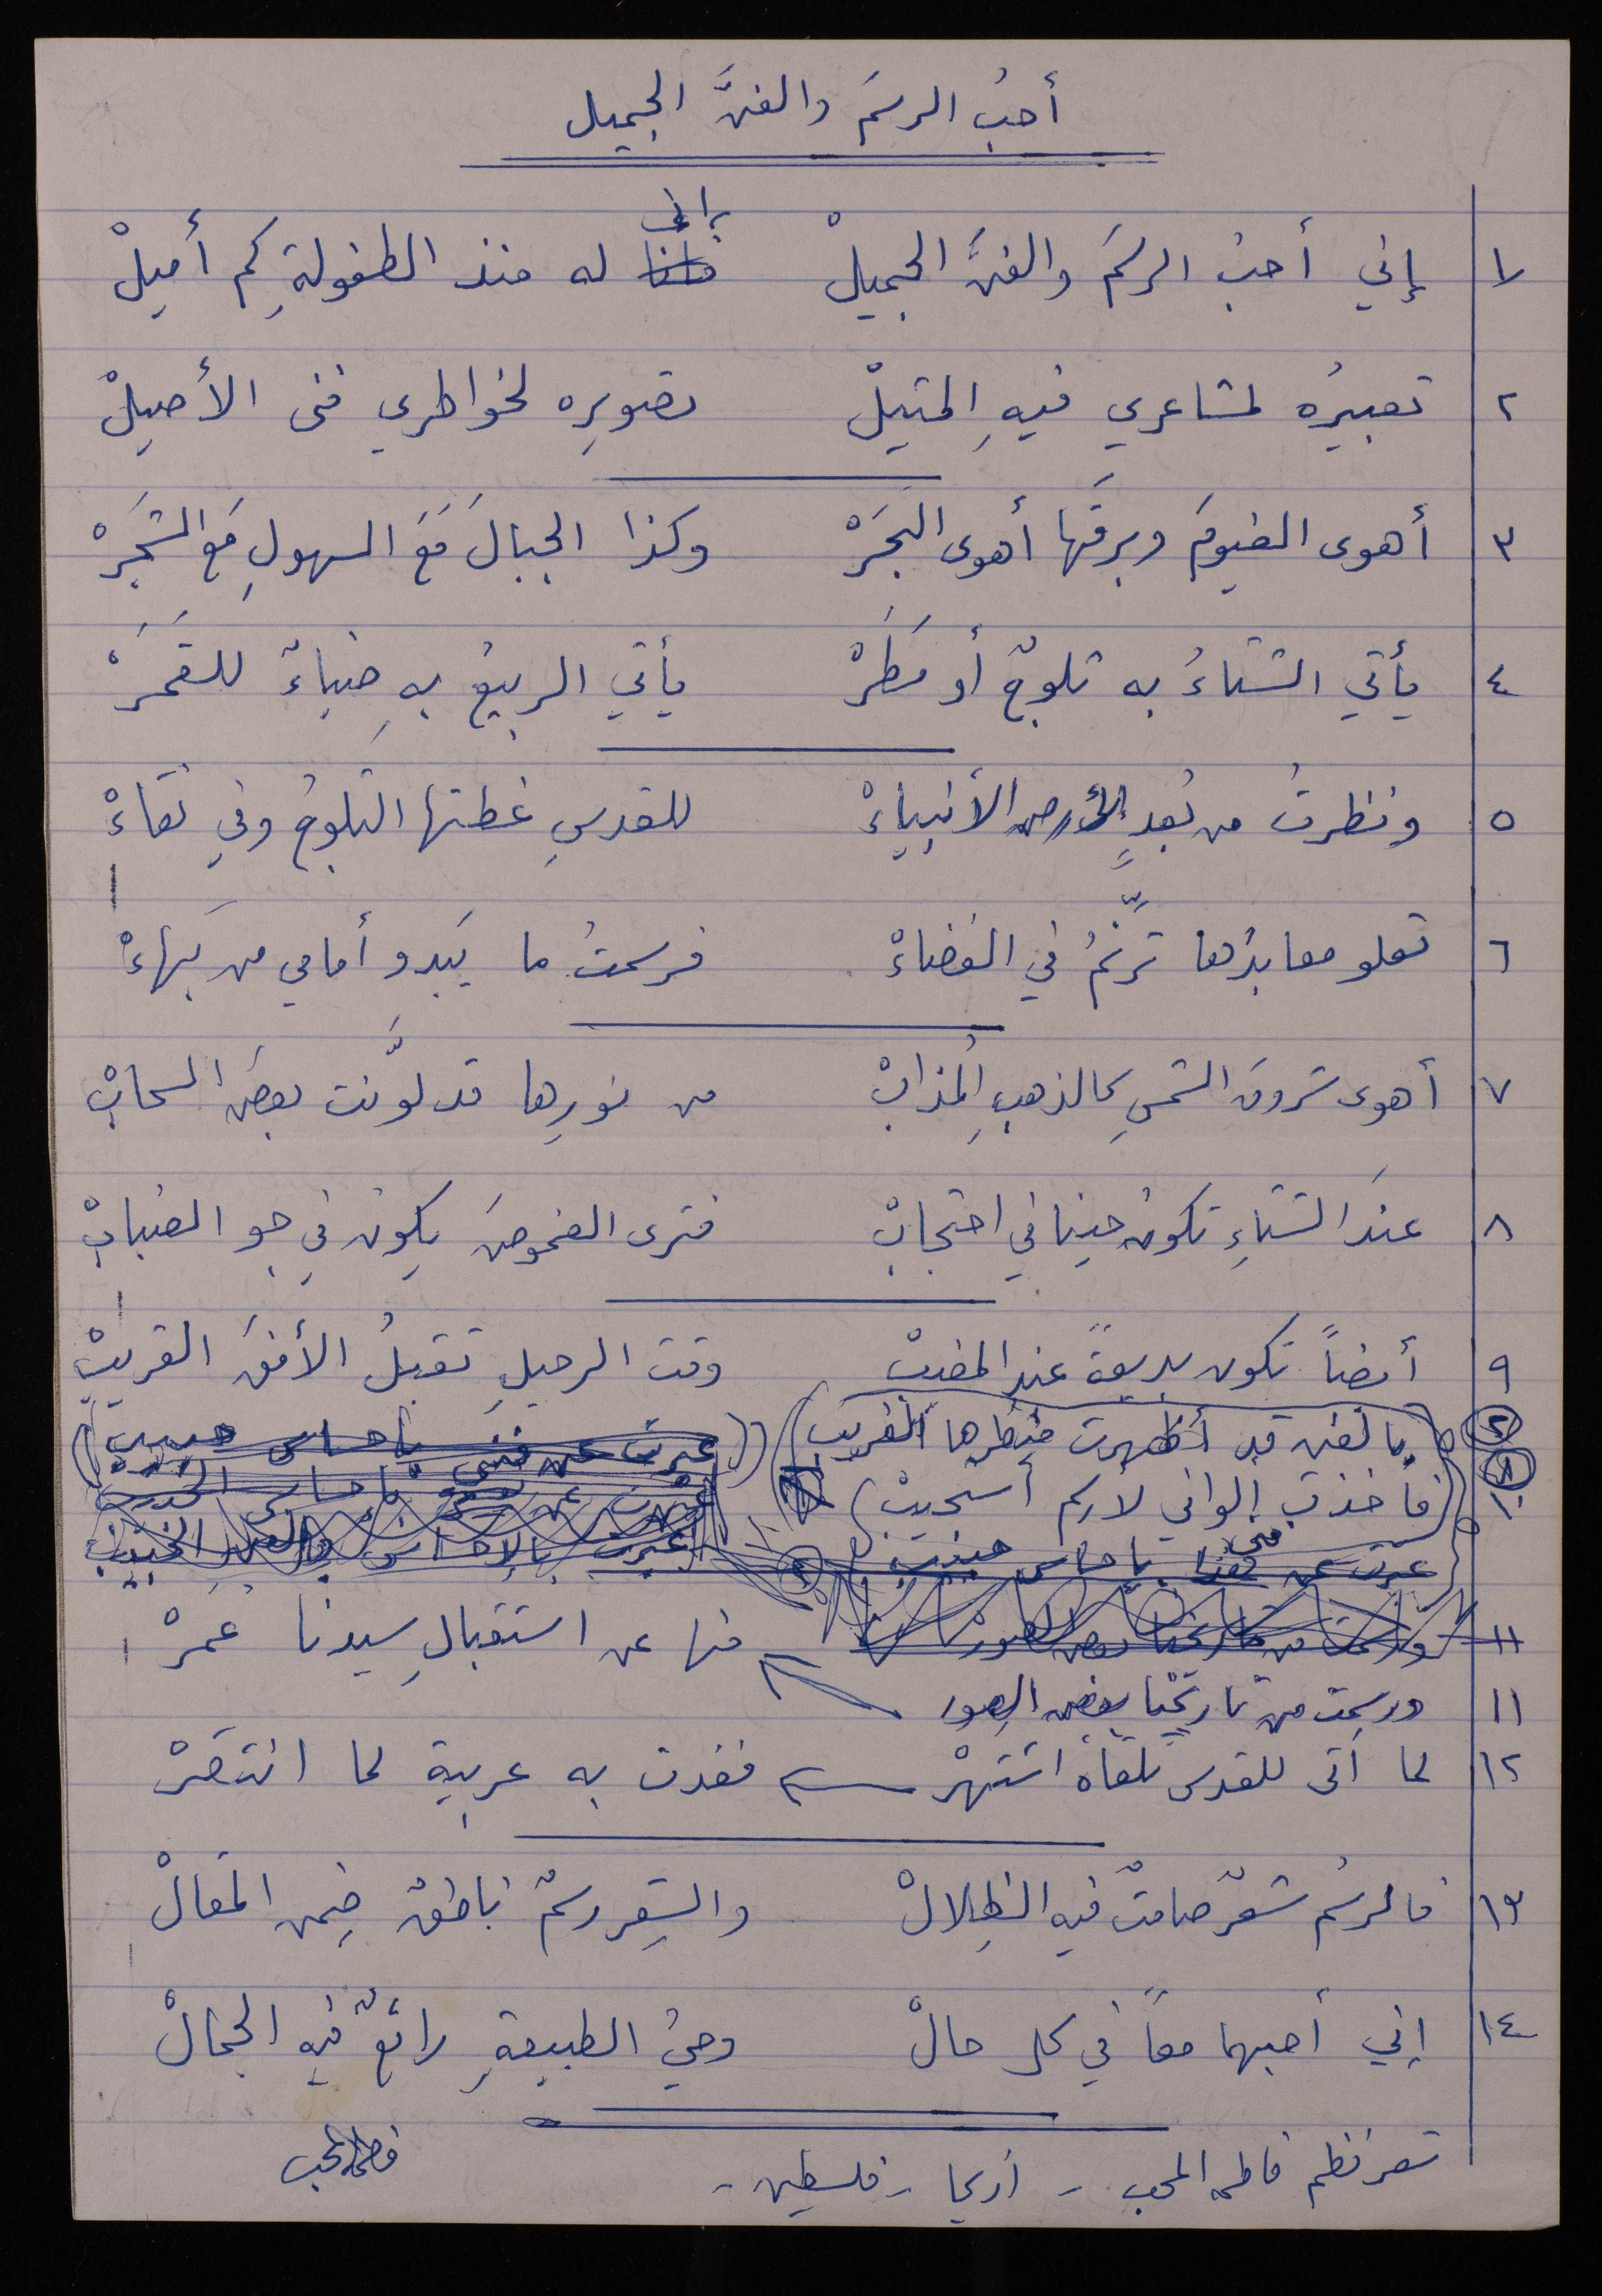 أحبُ الرسمَ والفنَّ الجميل
١ إني أحبُ الرسمَ والفنَّ الجميلْ إني له منذ الطفولةِ كم أميلْ
٢ تعبيرُه لمشاعري فيهِ المثيلْ تصويره لخواطري فنى الأصيلْ
٣ أهوى الغيومَ وبرقَها أهوى البَحَرْ وكذا الجبالَ مَعَ السهولِ مَع الشَجَرْ
٤ يأتي الشتاءُ به ثلوجٌ أو مَطَرْ يأتي الربيعُ بهِ ضياءٌ للقمَرْ
٥ ونظرتُ من بُعدٍ لأرض الأنبياءْ للقدسِ غطتها الثلوجُ وفي نقاءْ
٦ تعلو معابدُها ترنّمُ في الفضاءْ فرسمتُ ما يَبدو أمامي من بَهاءْ
٧ أهوى شروقَ الشمسِ كالذهبِ المُذابْ من نورِها قد لوَّنت بعضَ السحابْ
٨ عندَ الشتاءِ تكونُ حينا في احتجابْ فترى الغموضَ يكونُ في جو الضبابْ
٩ أيضاً تكون بديعةً عند المغيبْ وقت الرحيلِ تقبلُ الأفقَ القريبْ
٢ بالفن قد أظهرت منظرها الغريب عبرت عن فنى بإحساس حبيب
١ ١٠ فأخذت الواني لارسم أستجيبْ
عبرت عن فنى بإحساس
١١ ورسمت من تاريخنا بعض الصورْ فيها عن استقبالِ سيدنا عمرْ
١١ ورسمت من تاريخنا بعض الصور
١٢ لما أتى للقدس تلقاه اشتهرْ فغدت به عربية لما انتصَرْ
١٣ فالرسُم شعرٌ صامتٌ فيه الظِلالْ والشعِر رسمٌ ناطقٌ ضِمن المقالْ
١٤ إني أحبهما معاً في كل حالْ وحيُ الطبيعةِ رائعٌ فيه الجمالْ
شعر نظم فاطمه المحب - أريحا - فلسطين -
فاطمة المحب